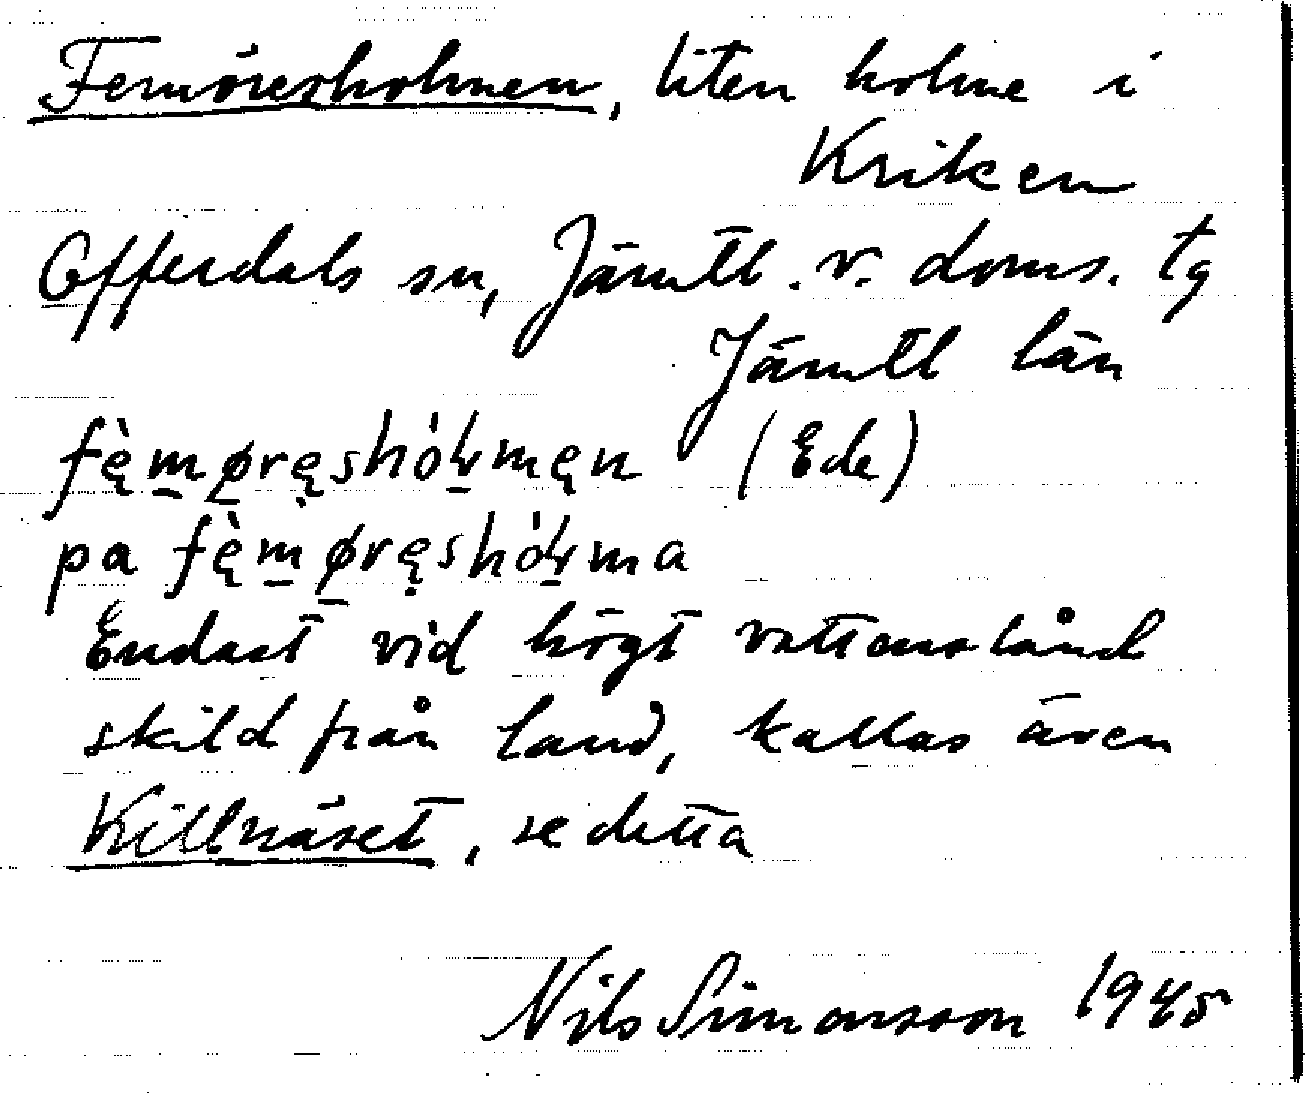 Femöresholmen, liten holme i
Kriken
Offerdals sn, Jämtl. v. doms. tg
Jämtl län
fę̀m̲ø̲ręshóɫ̲męn (Ede)
pa fę̀m̲ø̲ręshóɫ̲ma
Endast vid högt vattenstånd
skild från land, kallas även
Killnäset, se detta
Nils Simonsson 1945